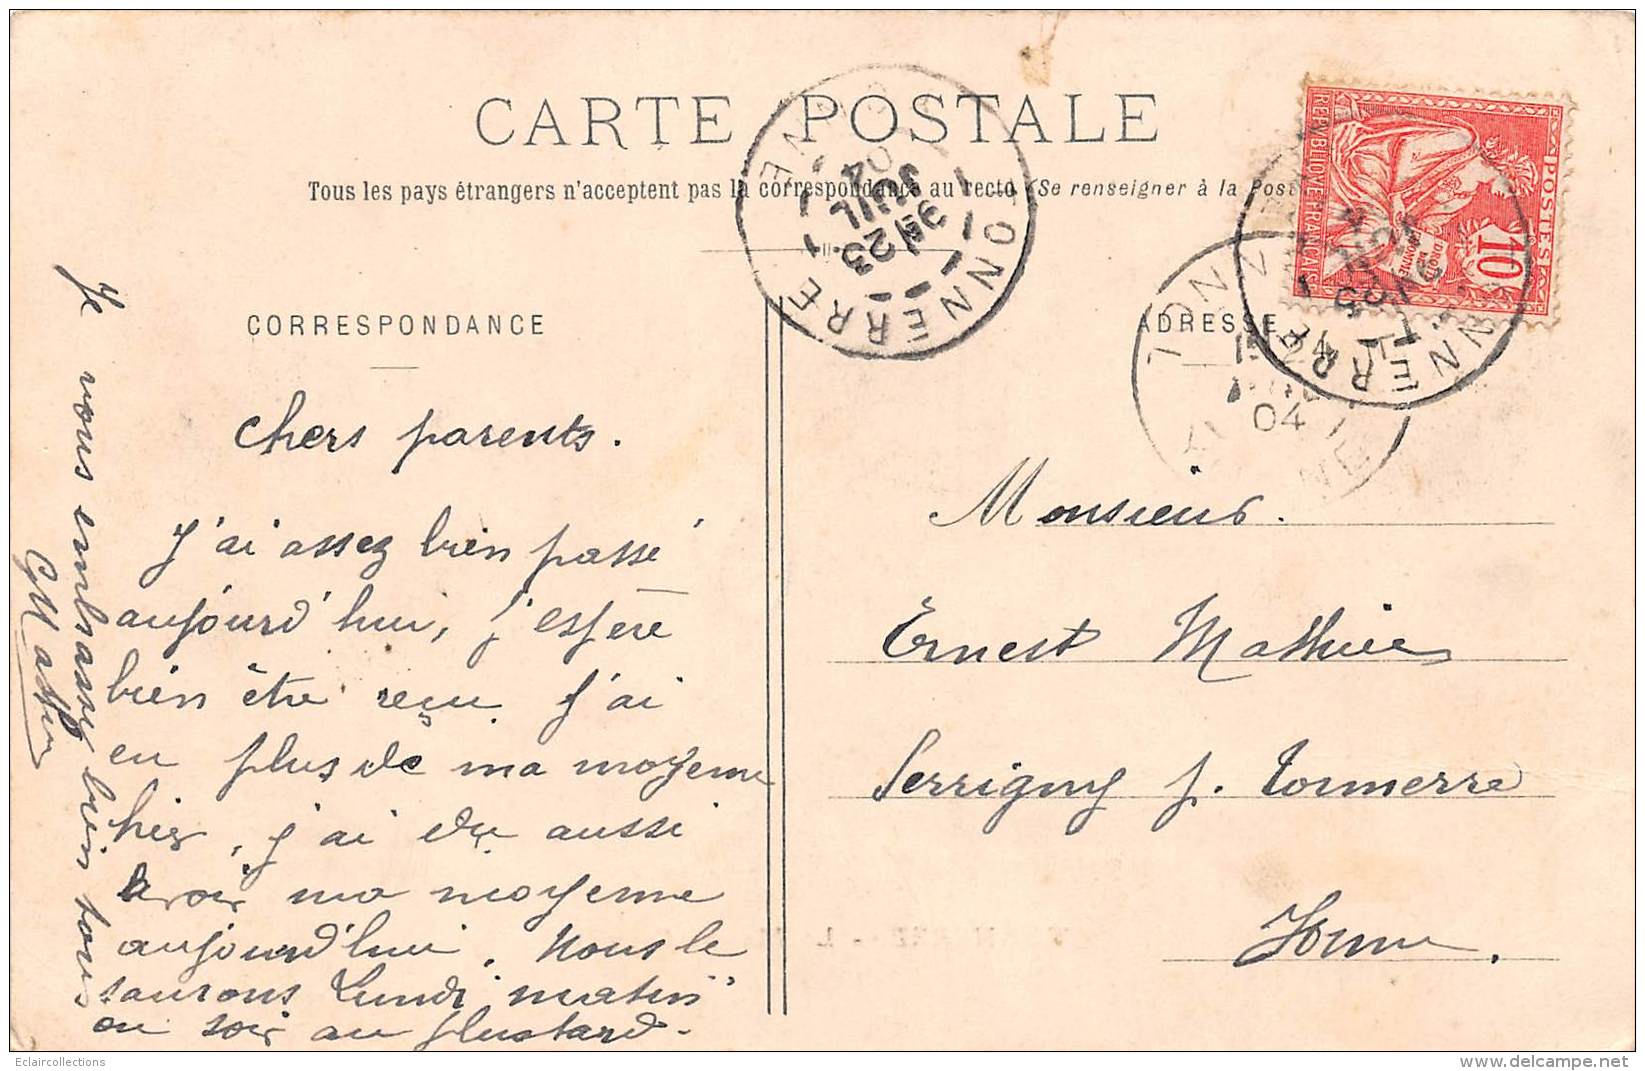 CARTE POSTALE
Tous les pays étrangers n'acceptent pas la correspondance au recto (Se renseigner à la Post
CORRESPONDANCE
Chers parents.
J'ai assez bien passé
aujourd'hui, j'espère
bien être reçu. J'ai
eu plus de ma moyenne
hier, j'ai du aussi
avoir ma moyenne
aujourd'hui. Nous le
saurons Lundi matin
ou soir au plus tard.
Je vous embrasse bien tous
TONNERRE
YONNE
1
23
JUIL
04
ADRESSE
Monsieur.
Ernest Mathieu
Serrigny p. Tonnerre
Yonne.
REPVBLIQVE FRANÇAISE
POSTES
10
DROITS
DE
L'HOMME
TONNERRE
04
Eclaircollections
www.delcampe.net